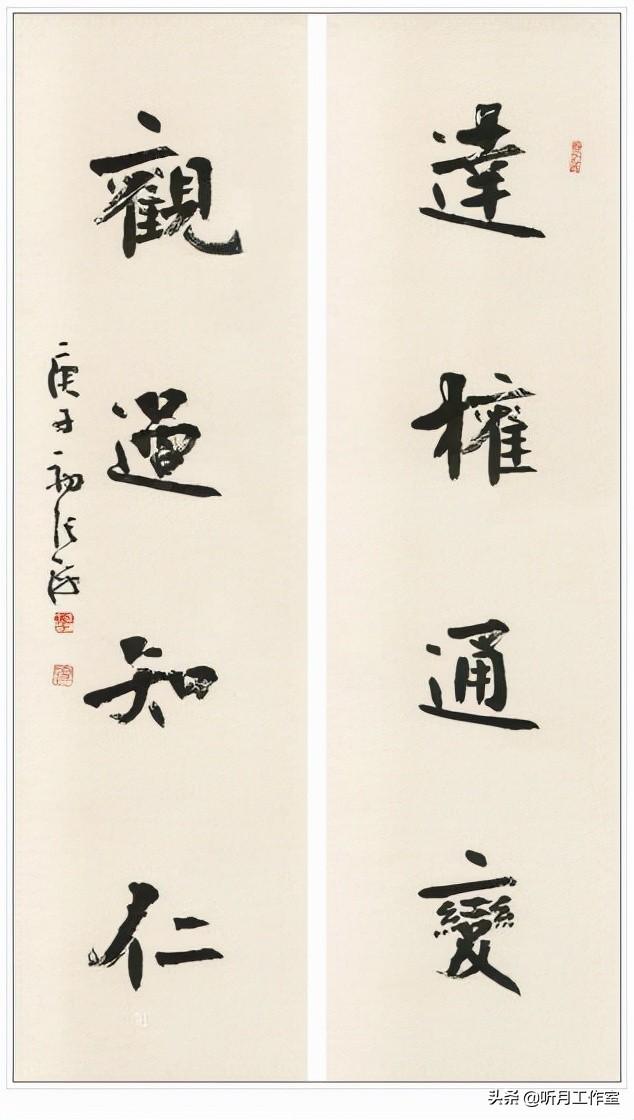 達權通變
觀過知仁
庚子初
头条 @听月工作室